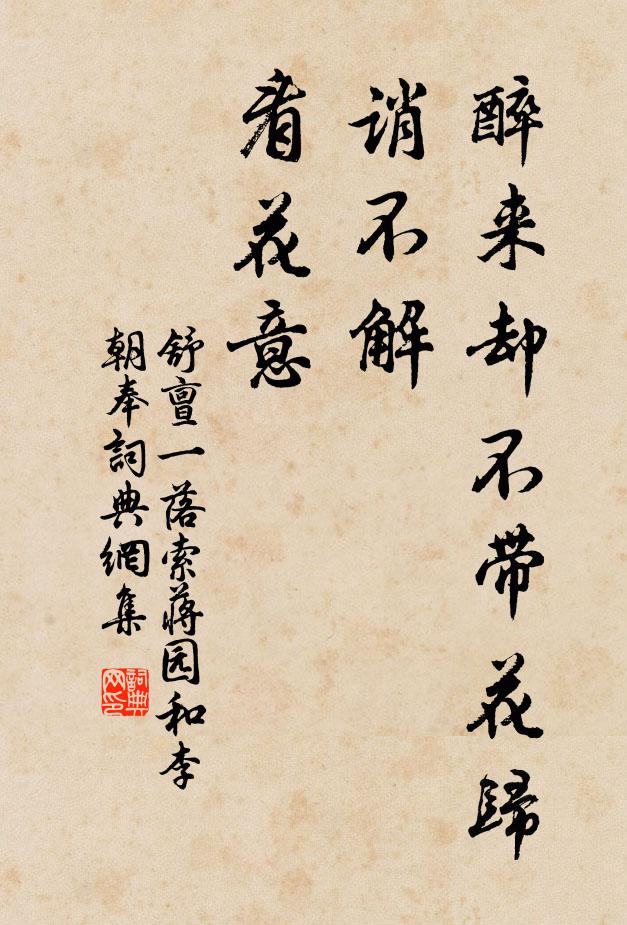 醉来却不带花歸
誚不解
看花意
舒亶一落索蔣园和李
朝奉詞典網集
詞典
网印